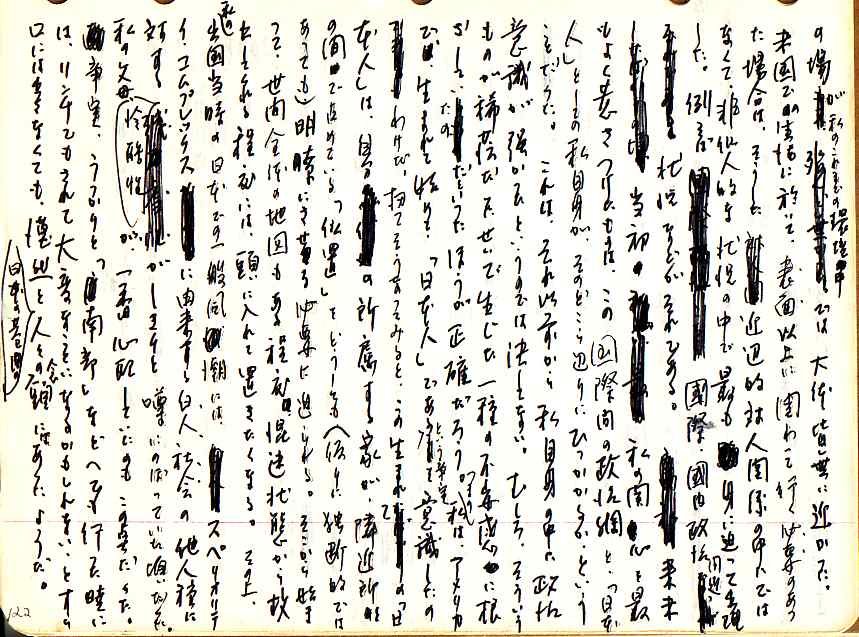 の場 が私のこれまでの環境中では大体皆無に近かった。
米国での生活に於いて、表面以上に関わって行く必要のあっ
た場合は、そうした近辺的対人関係の中では
なくて、非個人的な状況の中で最も身に迫って出現
した。例えば国際、国内政治問題
状況などがそれである。
当初の 私の関心を最
もよく惹きつけたものは、この国際間の政治網と、「日本
人」としての私自身が、そのどこら辺りにひっかかるか、という
ことだった。これは、それ以前から私自身の中に政治
意識が強かったというのでは決してない。むしろ、そういう
ものが稀薄だったせいで生じた一種の不安感に根
ざしていたのだといったほうが正確だろう。私は、アメリカ
で生まれて始めて、「日本人」であるという事実を意識したの
わけだ。扨てそうなってみると、この生まれて「日
本人」は、自分の所属する家が、隣近所
の間で占めている「位置」を、どうしても(仮りに独断的では
あっても)明瞭にさせる必要に迫られる。そこから始ま
って、世間全体の地図もある程度、混迷状態から救
出される程度には、頭に入れて置きたくなる。その上、
私の出国当時の日本での一般風潮にはスペリオリテ
イ・コムプレックスに由来する白人社会の他人種に
対する冷酷性がしきりと噂にのぼっていた頃だった。
私の父母が、一番心配していたのもこの点だった。
事実、うっかりと「南部」などへでも行った暁に
は、リンチでもされて大変なことになるかもしれないとすら
口には出さなくても、人々の念頭にはあったようだ。
122